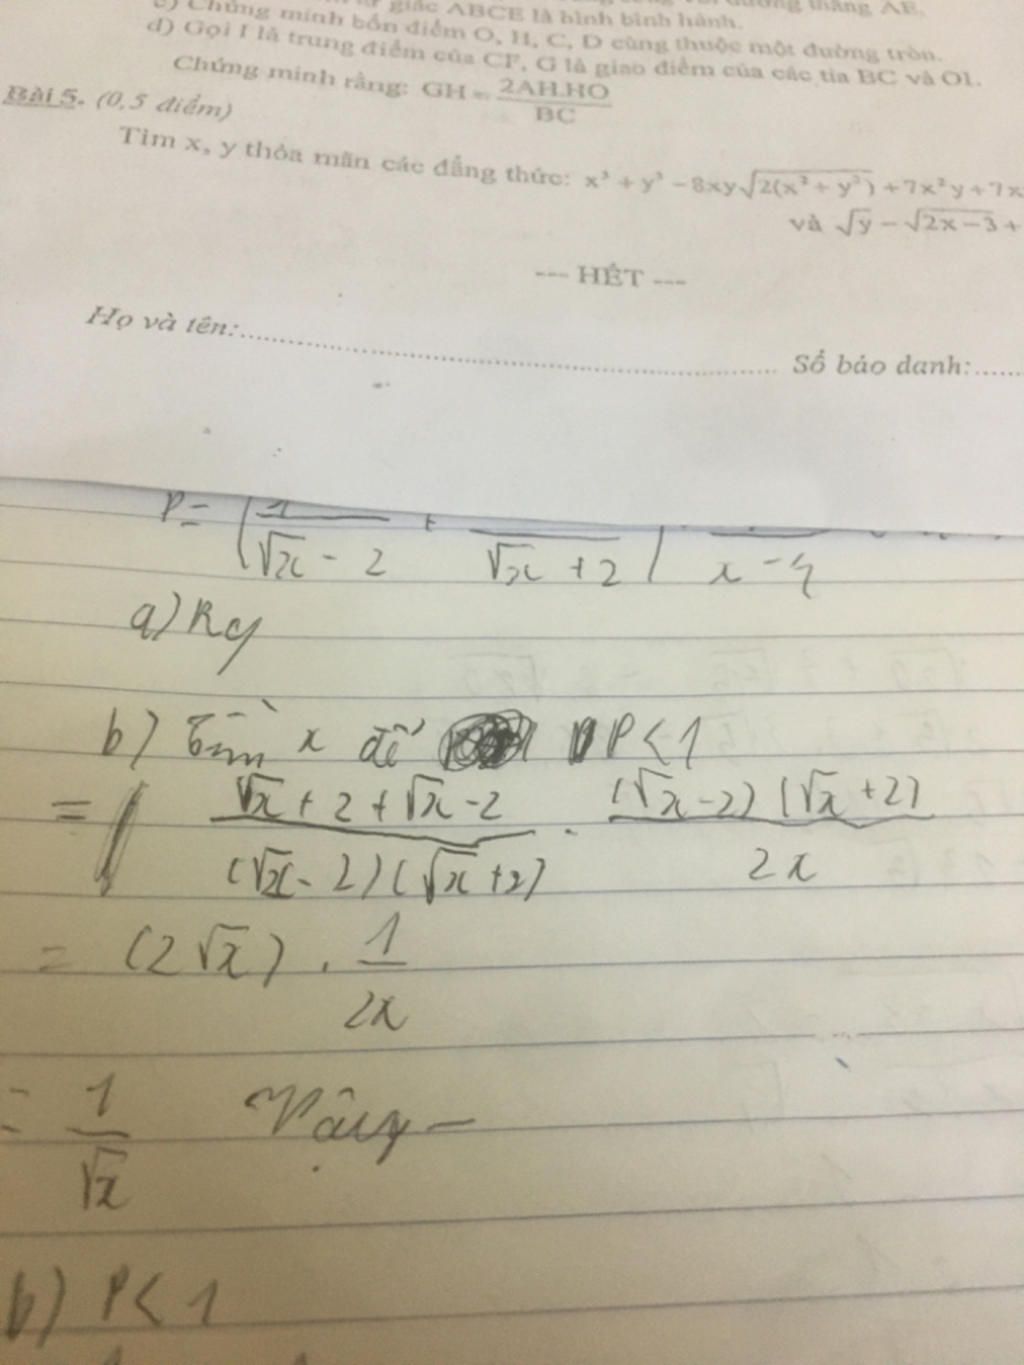 giác ABCE là hình bình hành. thẳng AE.
c) Chứng minh bốn điểm O, H, C, D cùng thuộc một đường tròn.
d) Gọi I là trung điểm của CF, G là giao điểm của các tia BC và OI.
Chứng minh rằng: GH = 2AH.HO / BC
Bài 5. (0,5 điểm)
Tìm x, y thỏa mãn các đẳng thức: x³ + y³ − 8xy√2(x² + y²) + 7x²y + 7x
và √y − √2x − 3 +
--- HẾT ---
Họ và tên:
Số báo danh:
P = (1 / √x − 2 + / √x + 2) / x − 4
a) Rg
b) Tìm x để P < 1
= √x + 2 + √x − 2 / (√x − 2)(√x + 2) . (√x − 2)(√x + 2) / 2x
= (2√x) . 1 / 2x
= 1 / √x Vậy −
b) P < 1